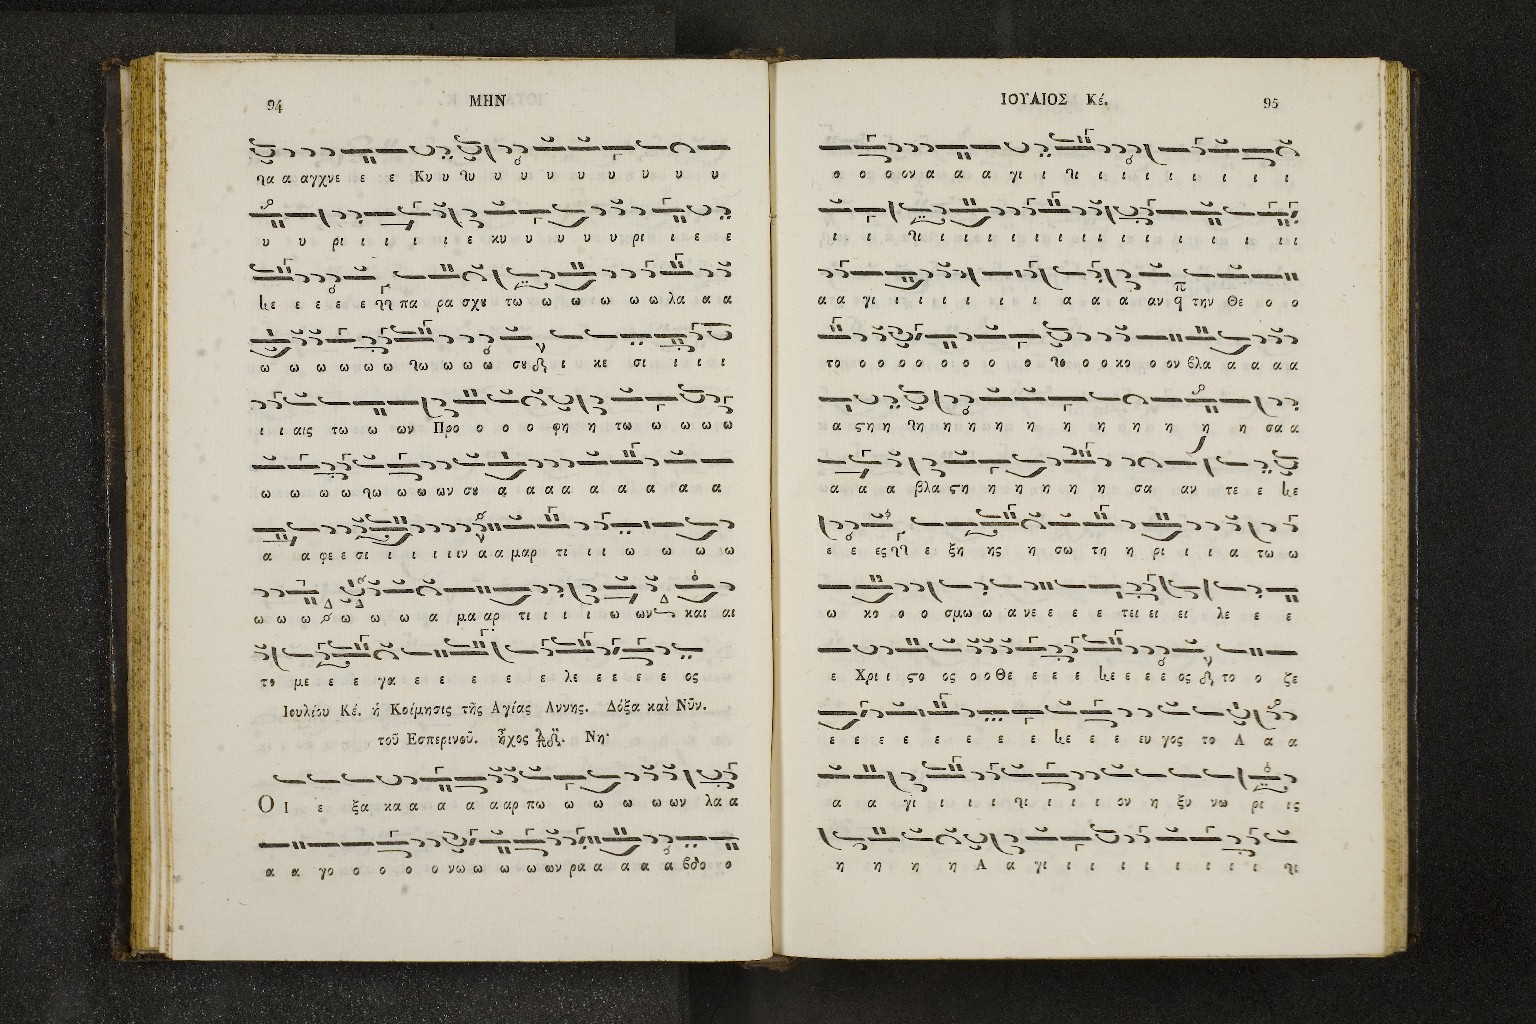 94 ΜΗΝ
ϥα α αγχνε ε ε Κυ υ ϥυ υ υ υ υ υ υ υ υ
υ υ ρι ι ι ι ι ε κυ υ υ υ υ ρι ι ε ε
ε ε ε ε ε πα ρα σχου τω ω ω ω ω ω λα α α
ω ω ω ω ω ω ϥω ω ω ω σου ι κε σι ι ι ι
ι ι αις τω ω ων Προ ο ο ο φη η τω ω ω ω ω
ω ω ω ω ϥω ω ω ων σου α α α α α α α α α
α α φε ε σι ι ι ι ι ιν α α μαρ τι ι ι ω ω ω ω
ω ω ω ω ω ω α μα αρ τι ι ι ι ω ων και αι
το με ε ε γα ε ε ε ε ε λε ε ε ε ε ος
Ιουλίου Κέ. ἡ Κοίμησις τῆς Αγίας Αννης. Δόξα καὶ Νῦν.
τοῦ Εσπερινοῦ. ἦχος Νη
Οι ε ξα κα α α α α αρ πω ω ω ω ω ων λα α
α α γο ο ο ο ο νω ω ω ω ων ρα α α α α βδο ο
ΙΟΥΛΙΟΣ Κέ. 95
ο ο ο ον α α α γι ι ϥι ι ι ι ι ι ι ι
ι ι ϥι ι ι ι ι ι ι ι ι ι ι ι ι ι ι
α α γι ι ι ι ι ι ι α α α αν την Θε ο ο
το ο ο ο ο ο ο ο ο ϥο ο ο κο ο ον βλα α α α α
α ϛη η ϥη η η η η η η η η η η η σα α
α α α βλα ϛη η η η η η η σα αν τε ε ε
ε ε ες ε ξη ης η σω τη η ρι ι ι α τω ω
ω κο ο ο σμω ω α νε ε ε ε τει ει ει λε ε ε
ε Χρι ι ϛο ος ο ο Θε ε ε ε ε ε ε ε ος το ο ζε
ε ε ε ε ε ε ε ε ε ε ε ε ευ γος το Α α α
α α γι ι ι ι ϥι ι ι ι ον η ξυ νω ρι ις
η η η η Α α γι ι ι ι ι ι ι ι ι ι ϥι